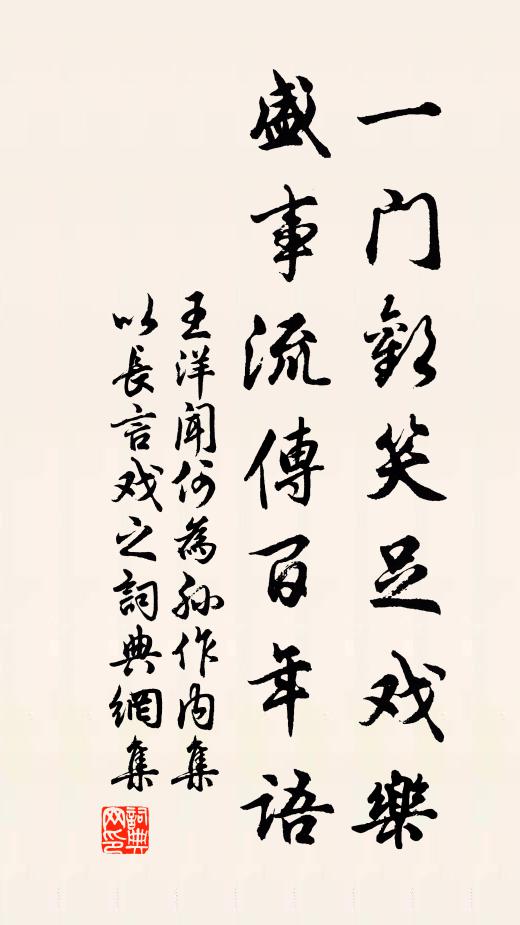 一门歡笑足戏樂
盛事流傳百年語
王洋闻何為孙作内集
以長言戏之詞典網集
詞典網印